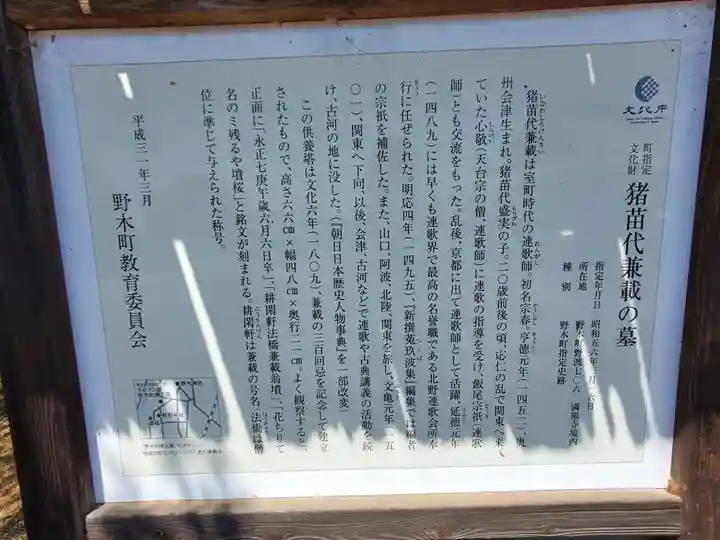 文化庁
町指定
文化財
猪苗代兼載の墓
指定年月日 昭和五六年三月二六日
所在地 野木町野渡七〇六 満福寺境内
種別 野木町指定史跡
猪苗代兼載は室町時代の連歌師。初名宗春。享徳元年(一四五二)、奥
州会津生まれ。猪苗代盛実の子。二〇歳前後の頃、応仁の乱で関東へ来
ていた心敬(天台宗の僧、連歌師)に連歌の指導を受け、飯尾宗祇(連歌
師)とも交流をもった。乱後、京都に出て連歌師として活躍、延徳元年
(一四八九)には早くも連歌界で最高の名誉職である北野連歌会所奉
行に任ぜられた。明応四年(一四九五)、『新撰菟玖波集』編集では編者
の宗祇を補佐した。また、山口、阿波、北陸、関東を旅し、文亀元年(一五
〇一)、関東へ下向、以後、会津、古河などで連歌や古典講義の活動を続
け、古河の地に没した。(『朝日日本歴史人物事典』を一部改変)
この供養塔は文化六年(一八〇九)、兼載の三百回忌を記念して建立
されたもので、高さ六六㎝×幅四八㎝×奥行二一㎝。よく観察すると、
正面に「永正七庚午歳六月六日卒」「耕閑軒法橋兼載翁墳」、「花ちりて
名のミ残るや墳桜」と銘文が刻まれる。耕閑軒は兼載の号名、法橋は僧
位に準じて与えられた称号。
平成三一年三月
野木町教育委員会